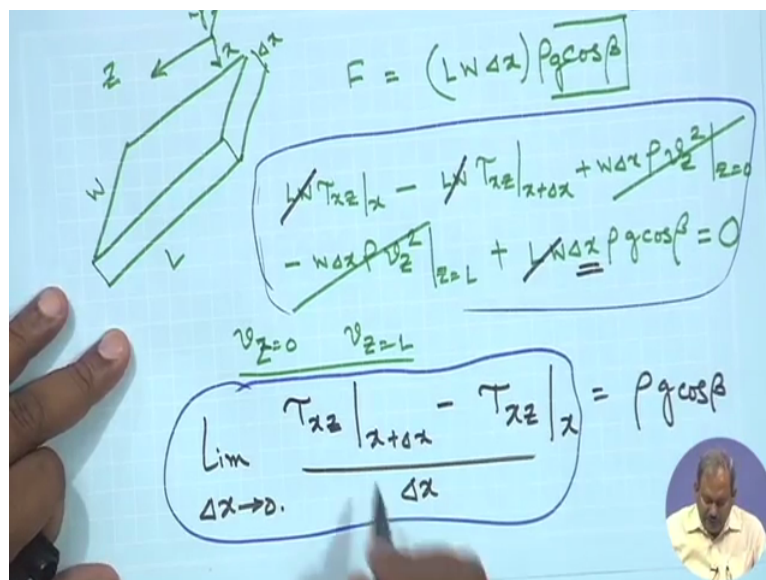 y
x Δx
Z
F = (LWΔx) ρgcosβ
W
L
LW τxz|x − LW τxz|x+Δx + WΔx ρ vz²|z=0
− WΔx ρ vz²|z=L + LWΔx ρ g cosβ = 0
vz=0 vz=L
Lim Δx→0. (τxz|x+Δx − τxz|x) / Δx = ρ g cosβ